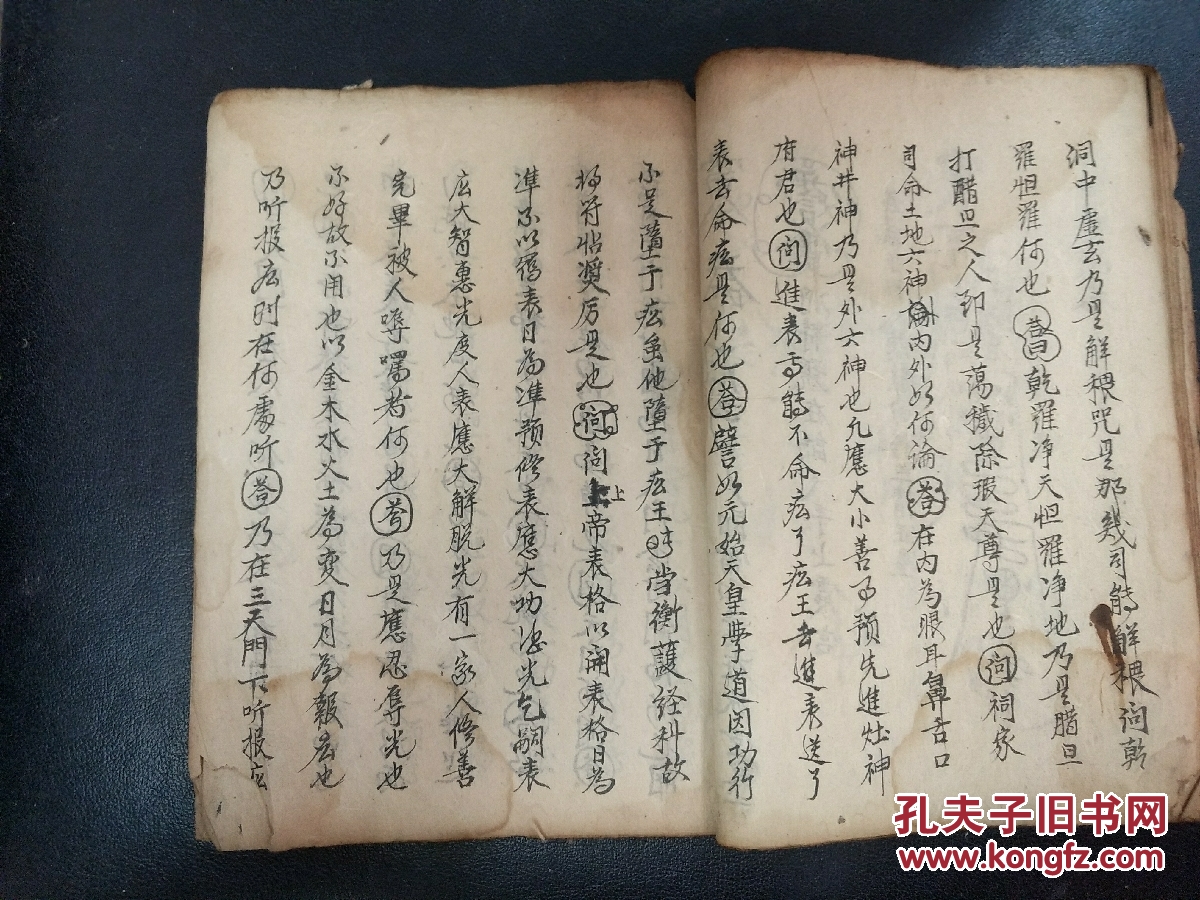 洞中虛玄乃是解穢咒是那幾司能解穢问乾
羅怛羅何也答曰乾羅净天怛羅净地乃是腊旦
打醋旦之人即是蕩穢除瑕天尊是也问祠家
司命土地六神内外如何論答在内為眼耳鼻舌口
神井神乃是外六神也凢應大小善事預先進灶神
府君也问進表事能不命庅了庅王去進表送了
表去命庅是何也答譬如元始天皇學道因功行
不足墮于庅虽他墮于庅王时当衡護经科故
符帖奬厉是也问问上帝表格以開表格日為
凖不以為表日為凖預修表應大功德光乞嗣表
庅大智惠光度人表應大解脱光有一家人修善
完畢被人辱嘱者何也答乃是應忍辱光也
不好故不用也以金木水火土為变日月為報庅也
乃听报庅时在何處听答乃在三天門下听报庅
上
孔夫子旧书网
www.kongfz.com